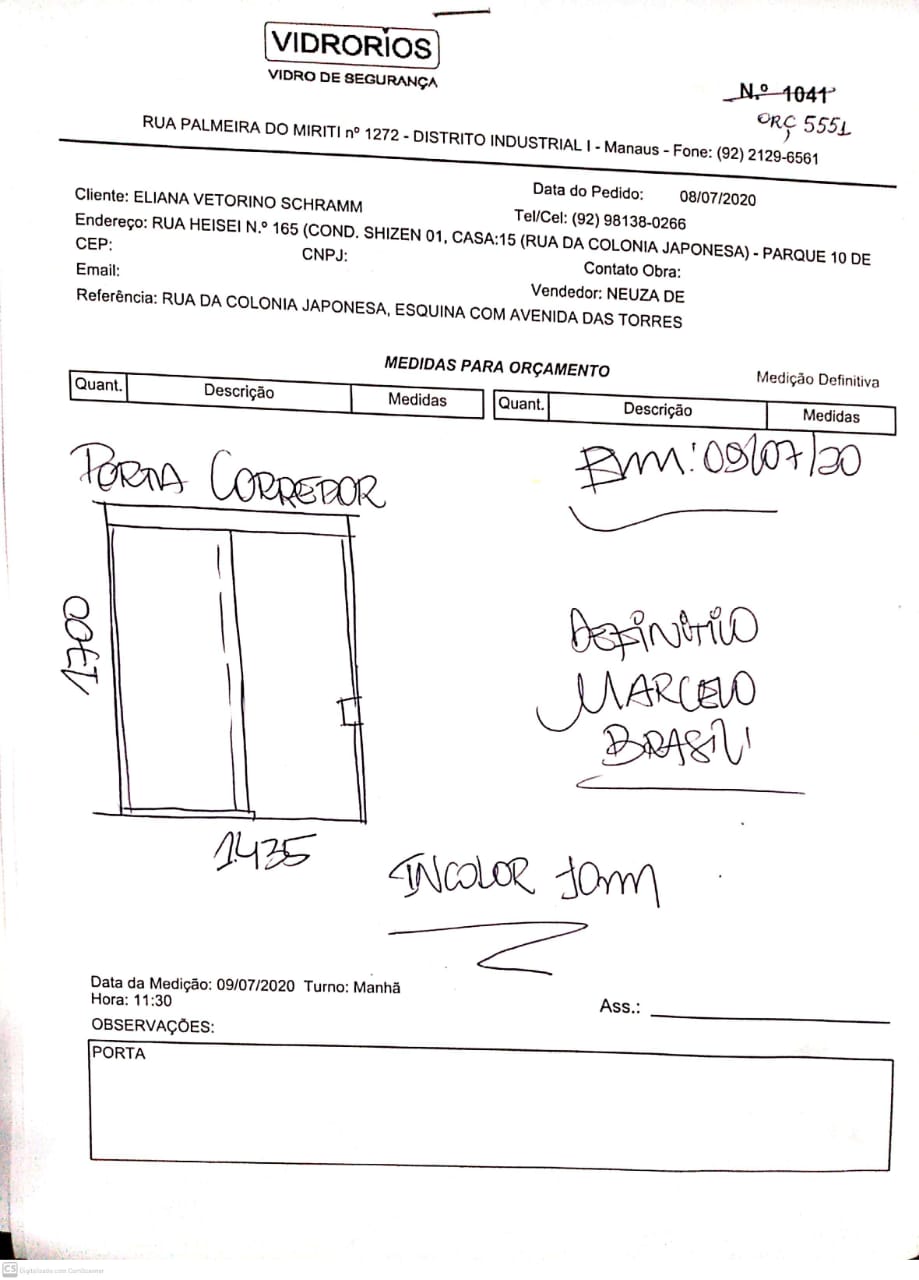 VIDRORIOS
VIDRO DE SEGURANÇA
N.º 1041
ORÇ 5551
RUA PALMEIRA DO MIRITI nº 1272 - DISTRITO INDUSTRIAL I - Manaus - Fone: (92) 2129-6561
Data do Pedido: 08/07/2020
Cliente: ELIANA VETORINO SCHRAMM
Tel/Cel: (92) 98138-0266
Endereço: RUA HEISEI N.º 165 (COND. SHIZEN 01, CASA:15 (RUA DA COLONIA JAPONESA) - PARQUE 10 DE
CEP: CNPJ: Contato Obra:
Email: Vendedor: NEUZA DE
Referência: RUA DA COLONIA JAPONESA, ESQUINA COM AVENIDA DAS TORRES
MEDIDAS PARA ORÇAMENTO
Medição Definitiva
Quant. Descrição Medidas Quant. Descrição Medidas
PORTA CORREDOR
Em: 09/07/20
1700
DEFINITIVO
MARCELO
BRASIL
1435
INCOLOR 10mm
Data da Medição: 09/07/2020 Turno: Manhã
Hora: 11:30
Ass.:
OBSERVAÇÕES:
PORTA
CS Digitalizado com CamScanner